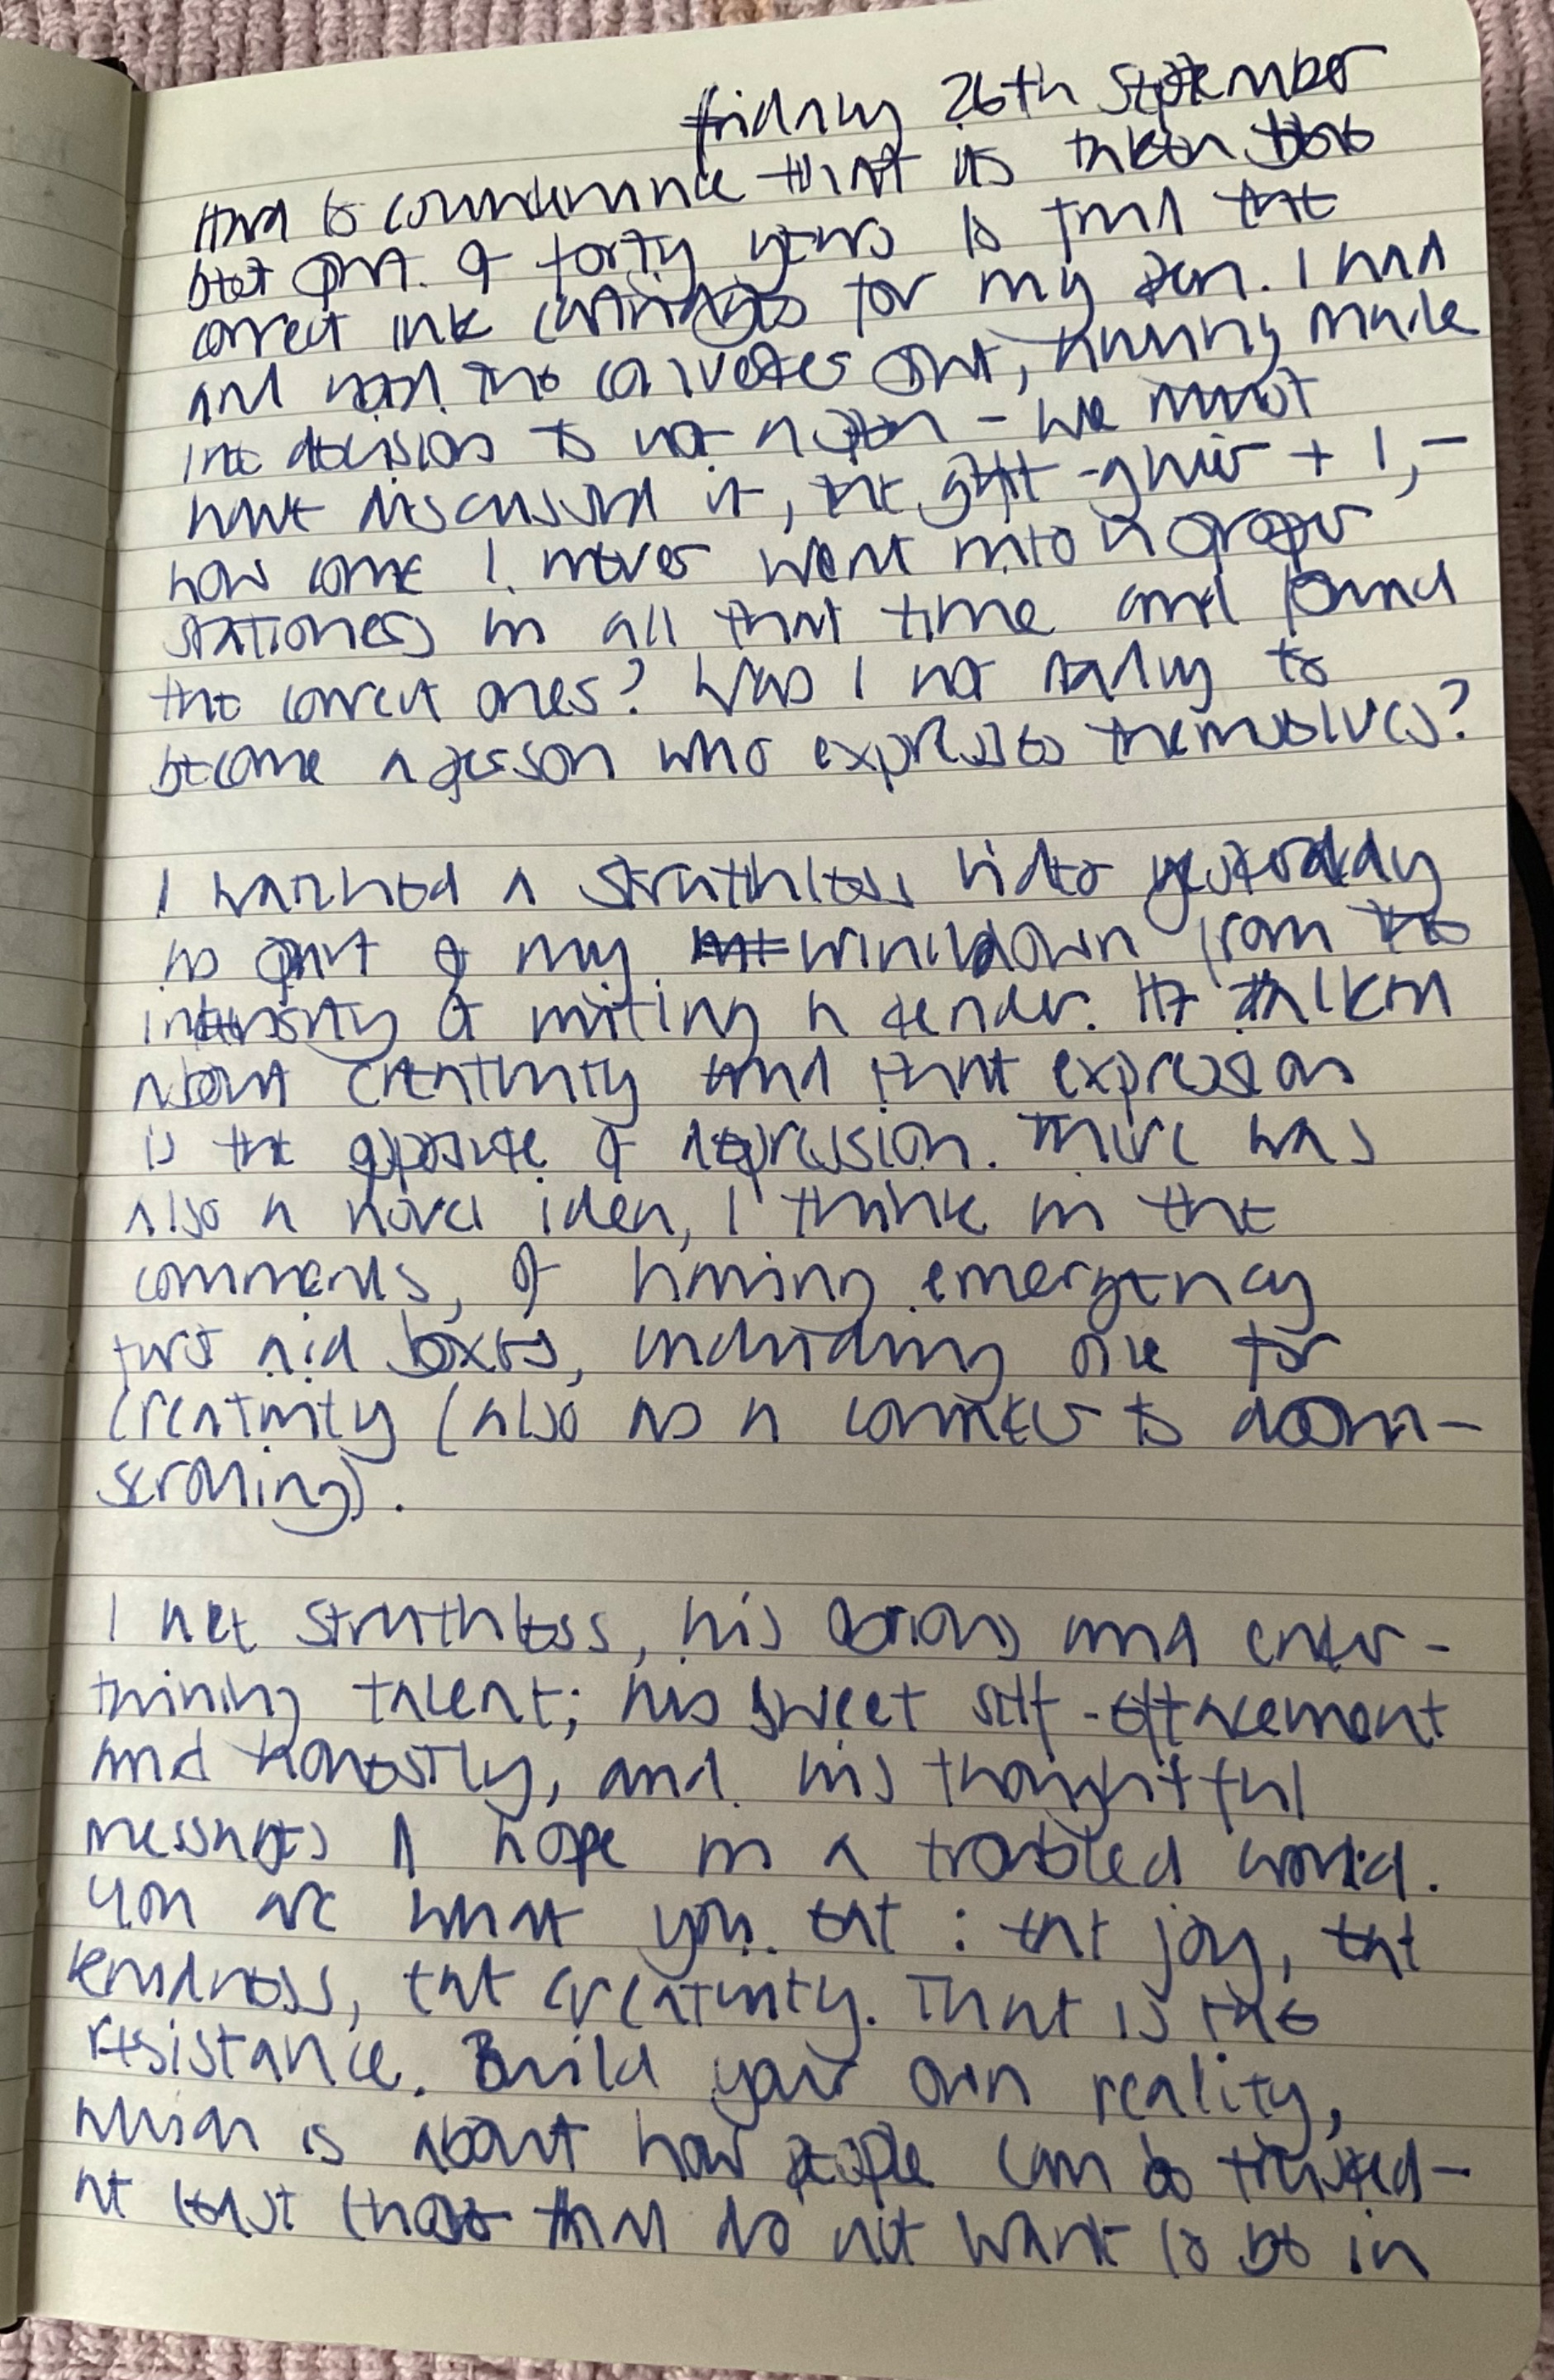 Friday 26th September
Hard to countenance that it's taken the
best part of forty years to find the
correct ink cartridges for my pen. I had
and used the converter part, having made
the decision to not again - we must
have discussed it, the gift-giver + I, -
how come I never went into a proper
stationers in all that time and found
the correct ones? Was I not ready to
become a person who expresses themselves?
I watched a Struthless video yesterday
as part of my winddown from the
intensity of writing a tender. He talked
about creativity and that expression
is the opposite of depression. There was
also a novel idea, I think in the
comments, of having emergency
first aid boxes, including one for
creativity (also as a counter to doom-
scrolling).
I like Struthless, his and enter-
taining talent; his sweet self-effacement
and honestly, and his thoughtful
messages of hope in a troubled world.
You are what you eat: eat joy, eat
kindness, eat creativity. That is the
resistance. Build your own reality,
which is about how people can be trusted -
at least those that do not want to be in